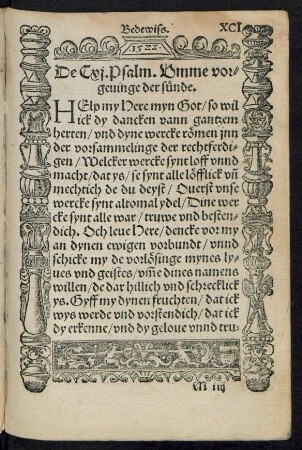 Bedewiss. XCI
1522
De Cxj. Psalm. Vmme vor-
geuinge der sünde.
HElp my Here myn Got/ so wil
ick dy dancken vann gantzem
herten/ vnd dyne wercke römen jnn
der vorsammelinge der rechtferdi-
gen/ Welcker wercke synt loff vnnd
macht/ dat ys/ se synt alle löfflick vñ
mechtich de du deyst/ Ouerst vnse
wercke synt altomal ydel/ Dine wer
cke synt alle war/ truwe vnd besten-
dich. Och leue Here/ dencke vor my
an dynen ewigen vorbundt/ vnnd
schicke my de vorlösinge mynes ly-
ues vnd geistes/ vm̃e dines namens
willen/ de dar hillich vnd schrecklick
ys. Gyff my dynen fruchten/ dat ick
wys werde vnd vorstendich/ dat ick
dy erkenne/ vnd dy geloue vnnd tru-
M iiij